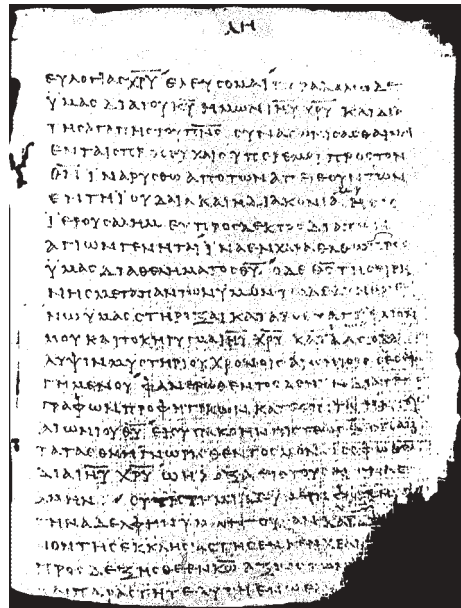 ΛΗ
ΕΥΛΟΓΙΑϹ ΧΡΥ ΕΛΕΥϹΟΜΑΙ ΠΑΡΑΚΑΛΩ ΔΕ
ΫΜΑϹ ΔΙΑ ΤΟΥ ΚΥ ΗΜΩΝ ΙΗΥ ΧΡΥ ΚΑΙ ΔΙΑ
ΤΗϹ ΑΓΑΠΗϹ ΤΟΥ ΠΝϹ ϹΥΝΑΓΩΝΙϹΑϹΘΑΙ ΜΟΙ
ΕΝ ΤΑΙϹ ΠΡΟϹΕΥΧΑΙϹ ΥΠΕΡ ΕΜΟΥ ΠΡΟϹ ΤΟΝ
ΘΝ ΪΝΑ ΡΥϹΘΩ ΑΠΟ ΤΩΝ ΑΠΕΙΘΟΥΝΤΩΝ
ΕΝ ΤΗ ΙΟΥΔΑΙΑ ΚΑΙ Η ΔΙΑΚΟΝΙΑ ΜΟΥ Η ΕΙϹ
ΪΕΡΟΥϹΑΛΗΜ ΕΥΠΡΟϹΔΕΚΤΟϹ ΔΙΑ
ΑΓΙΩΝ ΓΕΝΗΤΑΙ ΪΝΑ ΕΝ ΧΑΡΑ ΕΛΘΩ ΠΡΟϹ
ΫΜΑϹ ΔΙΑ ΘΕΛΗΜΑΤΟϹ ΘΥ Ο ΔΕ ΘϹ ΤΗϹ ΕΙΡΗ
ΝΗϹ ΜΕΤΑ ΠΑΝΤΩΝ ΥΜΩΝ ΤΩ ΔΕ ΔΥΝΑΜΕ
ΝΩ ΥΜΑϹ ϹΤΗΡΙΞΑΙ ΚΑΤΑ ΤΟ ΕΥΑΓΓΕΛΙΟΝ
ΜΟΥ ΚΑΙ ΤΟ ΚΗΡΥΓΜΑ ΙΗΥ ΧΡΥ ΚΑΤΑ ΑΠΟΚΑ
ΛΥΨΙΝ ΜΥϹΤΗΡΙΟΥ ΧΡΟΝΟΙϹ ΑΙΩΝΙΟΙϹ ϹΕϹΕΙ
ΓΗΜΕΝΟΥ ΦΑΝΕΡΩΘΕΝΤΟϹ ΔΕ ΝΥΝ ΔΙΑ ΤΕ
ΓΡΑΦΩΝ ΠΡΟΦΗΤΙΚΩΝ ΚΑΤ ΕΠΙΤΑΓΗΝ ΤΟΥ
ΑΙΩΝΙΟΥ ΘΥ ΕΙϹ ΥΠΑΚΟΗΝ ΠΙϹΤΕΩϹ ΕΙϹ ΠΑΝ
ΤΑ ΤΑ ΕΘΝΗ ΓΝΩΡΙϹΘΕΝΤΟϹ ΜΟΝΩ ϹΟΦΩ ΘΩ
ΔΙΑ ΙΗΥ ΧΡΥ Ω Η ΔΟΞΑ ΕΙϹ ΤΟΥϹ ΑΙΩΝΑϹ
ΑΜΗΝ ϹΥΝΙϹΤΗΜΙ ΔΕ
ΤΗΝ ΑΔΕΛΦΗΝ ΥΜΩΝ ΟΥϹΑΝ ΚΑΙ
ΝΟΝ ΤΗϹ ΕΚΚΛΗϹΙΑϹ ΤΗϹ ΕΝ ΚΕΝΧΡΕ
ΠΡΟϹΔΕΞΗϹΘΕ ΕΝ ΚΩ ΑΞΙΩϹ ΤΩΝ
ΚΑΙ ΠΑΡΑϹΤΗΤΕ ΑΥΤΗ ΕΝ Ω